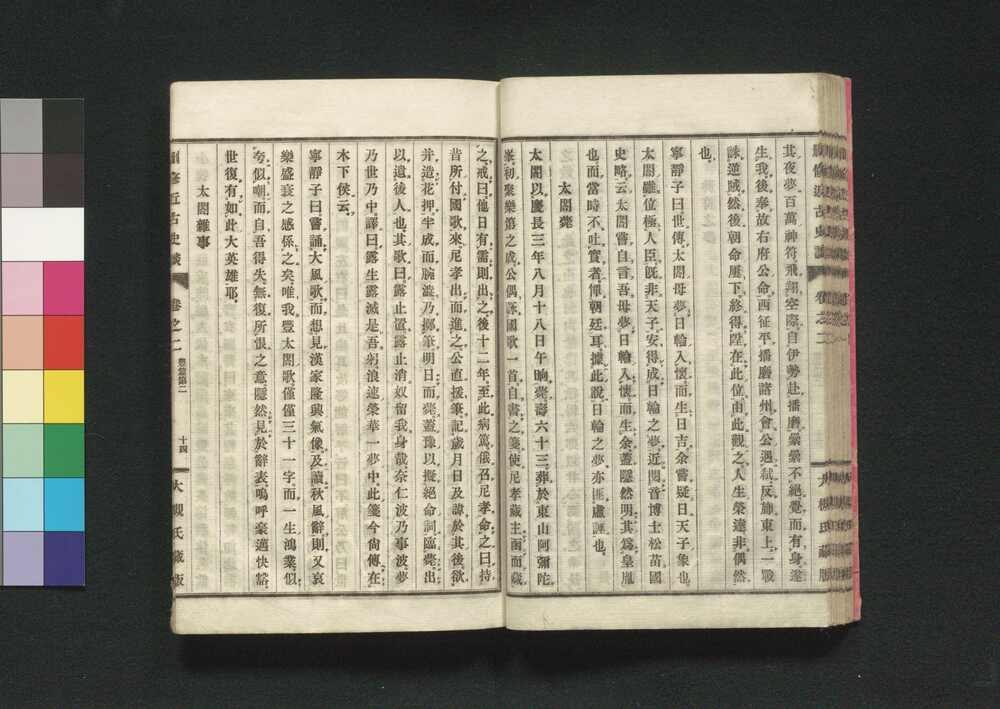 其夜夢百萬神符飛翔空際自伊勢赴播磨纍纍不絕覺而有身遂
生我後奉故右府公命西征平播磨諸州會公遇弑反旆東上一戰
誅逆賊然後朝命屢下終得陞在此位由此觀之人生榮達非偶然
也
寧靜子曰世傳太閤母夢日輪入懷而生曰吉余嘗疑日天子象也
太閤雖位極人臣旣非天子安得成日輪之夢近閱音博士松苗國
史略云太閤嘗自言吾母夢日輪入懷而生余蓋隱然明其爲皇胤
也而當時不吐實者憚朝廷耳據此說日輪之夢亦匪虛誣也
太閤薨
太閤以慶長三年八月十八日午晌薨壽六十三葬於東山阿彌陀
峯初聚樂第之成公偶詠國歌一首自書之箋使尼孝藏主函而藏
之戒曰他日有需則出之後十二年至此病篤俄召尼孝命之曰持
昔所付國歌來尼孝出而進之公直援筆記歲月日及諱於其後欲
并造花押半成而腕澁乃擲筆明日而薨蓋豫以擬絕命詞臨薨出
以遺後人也其歌曰露止置露止消奴留我身哉奈仁波乃事波夢
乃世乃中譯曰露生露滅是吾躬浪速榮華一夢中此箋今尙傳在
木下侯云
寧靜子曰嘗誦大風歌而想見漢家隆興氣像及讀秋風辭則又哀
樂盛衰之感係之矣唯我豐太閤歌僅僅三十一字而一生鴻業似
夸似嘲而自吾得失無復所恨之意隱然見於辭表嗚呼豪邁快豁
世復有如此大英雄耶
太閤雜事
刪修近古史談 卷之二 豐篇第二 十四 大槻氏藏版